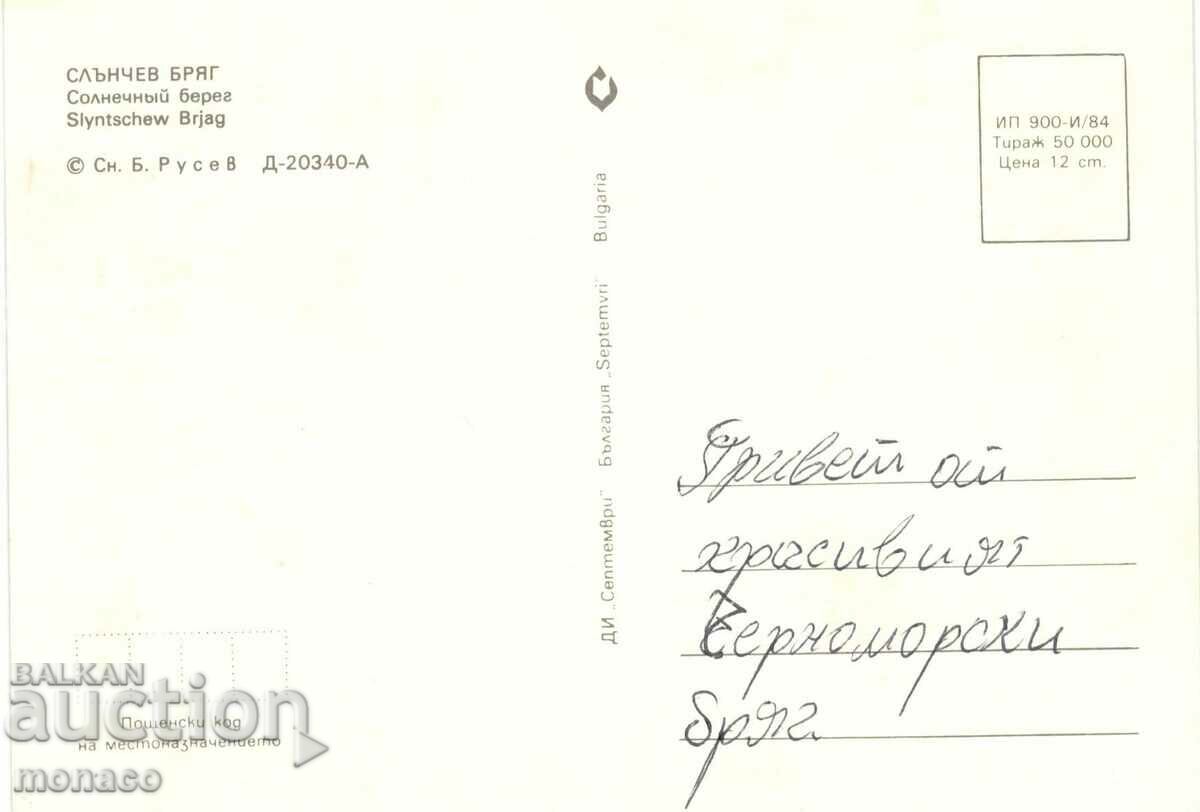 СЛЪНЧЕВ БРЯГ
Солнечный берег
Slyntschew Brjag
© Сн. Б. Русев Д-20340-А
ИП 900-И/84
Тираж 50 000
Цена 12 ст.
ДИ „Септември" България „Septemvri" Bulgaria
Привет от
красивият
Черноморски
бряг.
Пощенски код
на местоназначението
BALKAN
auction
monaco